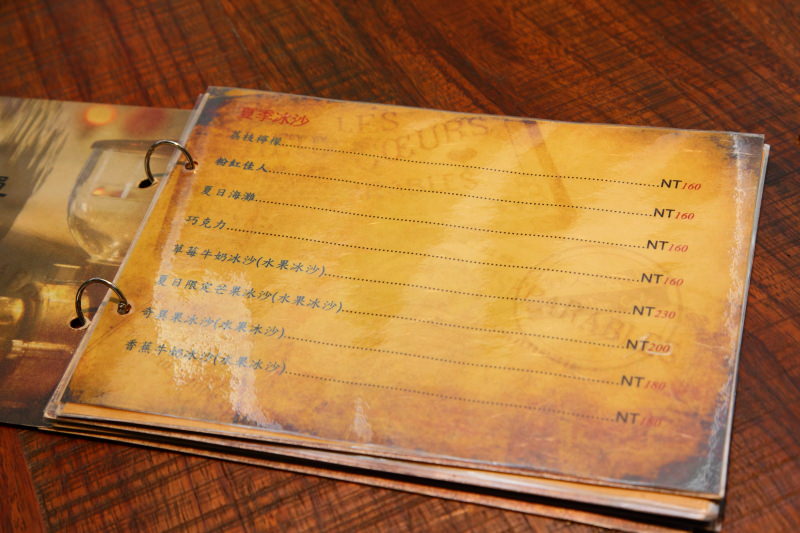 夏季冰沙
荔枝檸檬........NT160
粉紅佳人........NT160
夏日海灘........NT160
巧克力........NT160
草莓牛奶冰沙(水果冰沙)........NT230
夏日限定芒果冰沙(水果冰沙)........NT200
奇異果冰沙(水果冰沙)........NT180
香蕉牛奶冰沙(水果冰沙)........NT180
LES